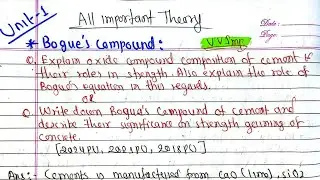 Unit-1
All important Theory
Date:
Page:
* Bogue's Compound:
VVImp
Q. Explain oxide compound composition of cement &
their roles in strength. Also explain the role of
Bogue's equation in this regards.
OR
Q. Write down Bogue's Compound of cement and
describe their significance on strength gaining of
concrete.
[2024PU, 2021PU, 2018PU]
Ans:- Cements is manufactured from CaO (lime), SiO2